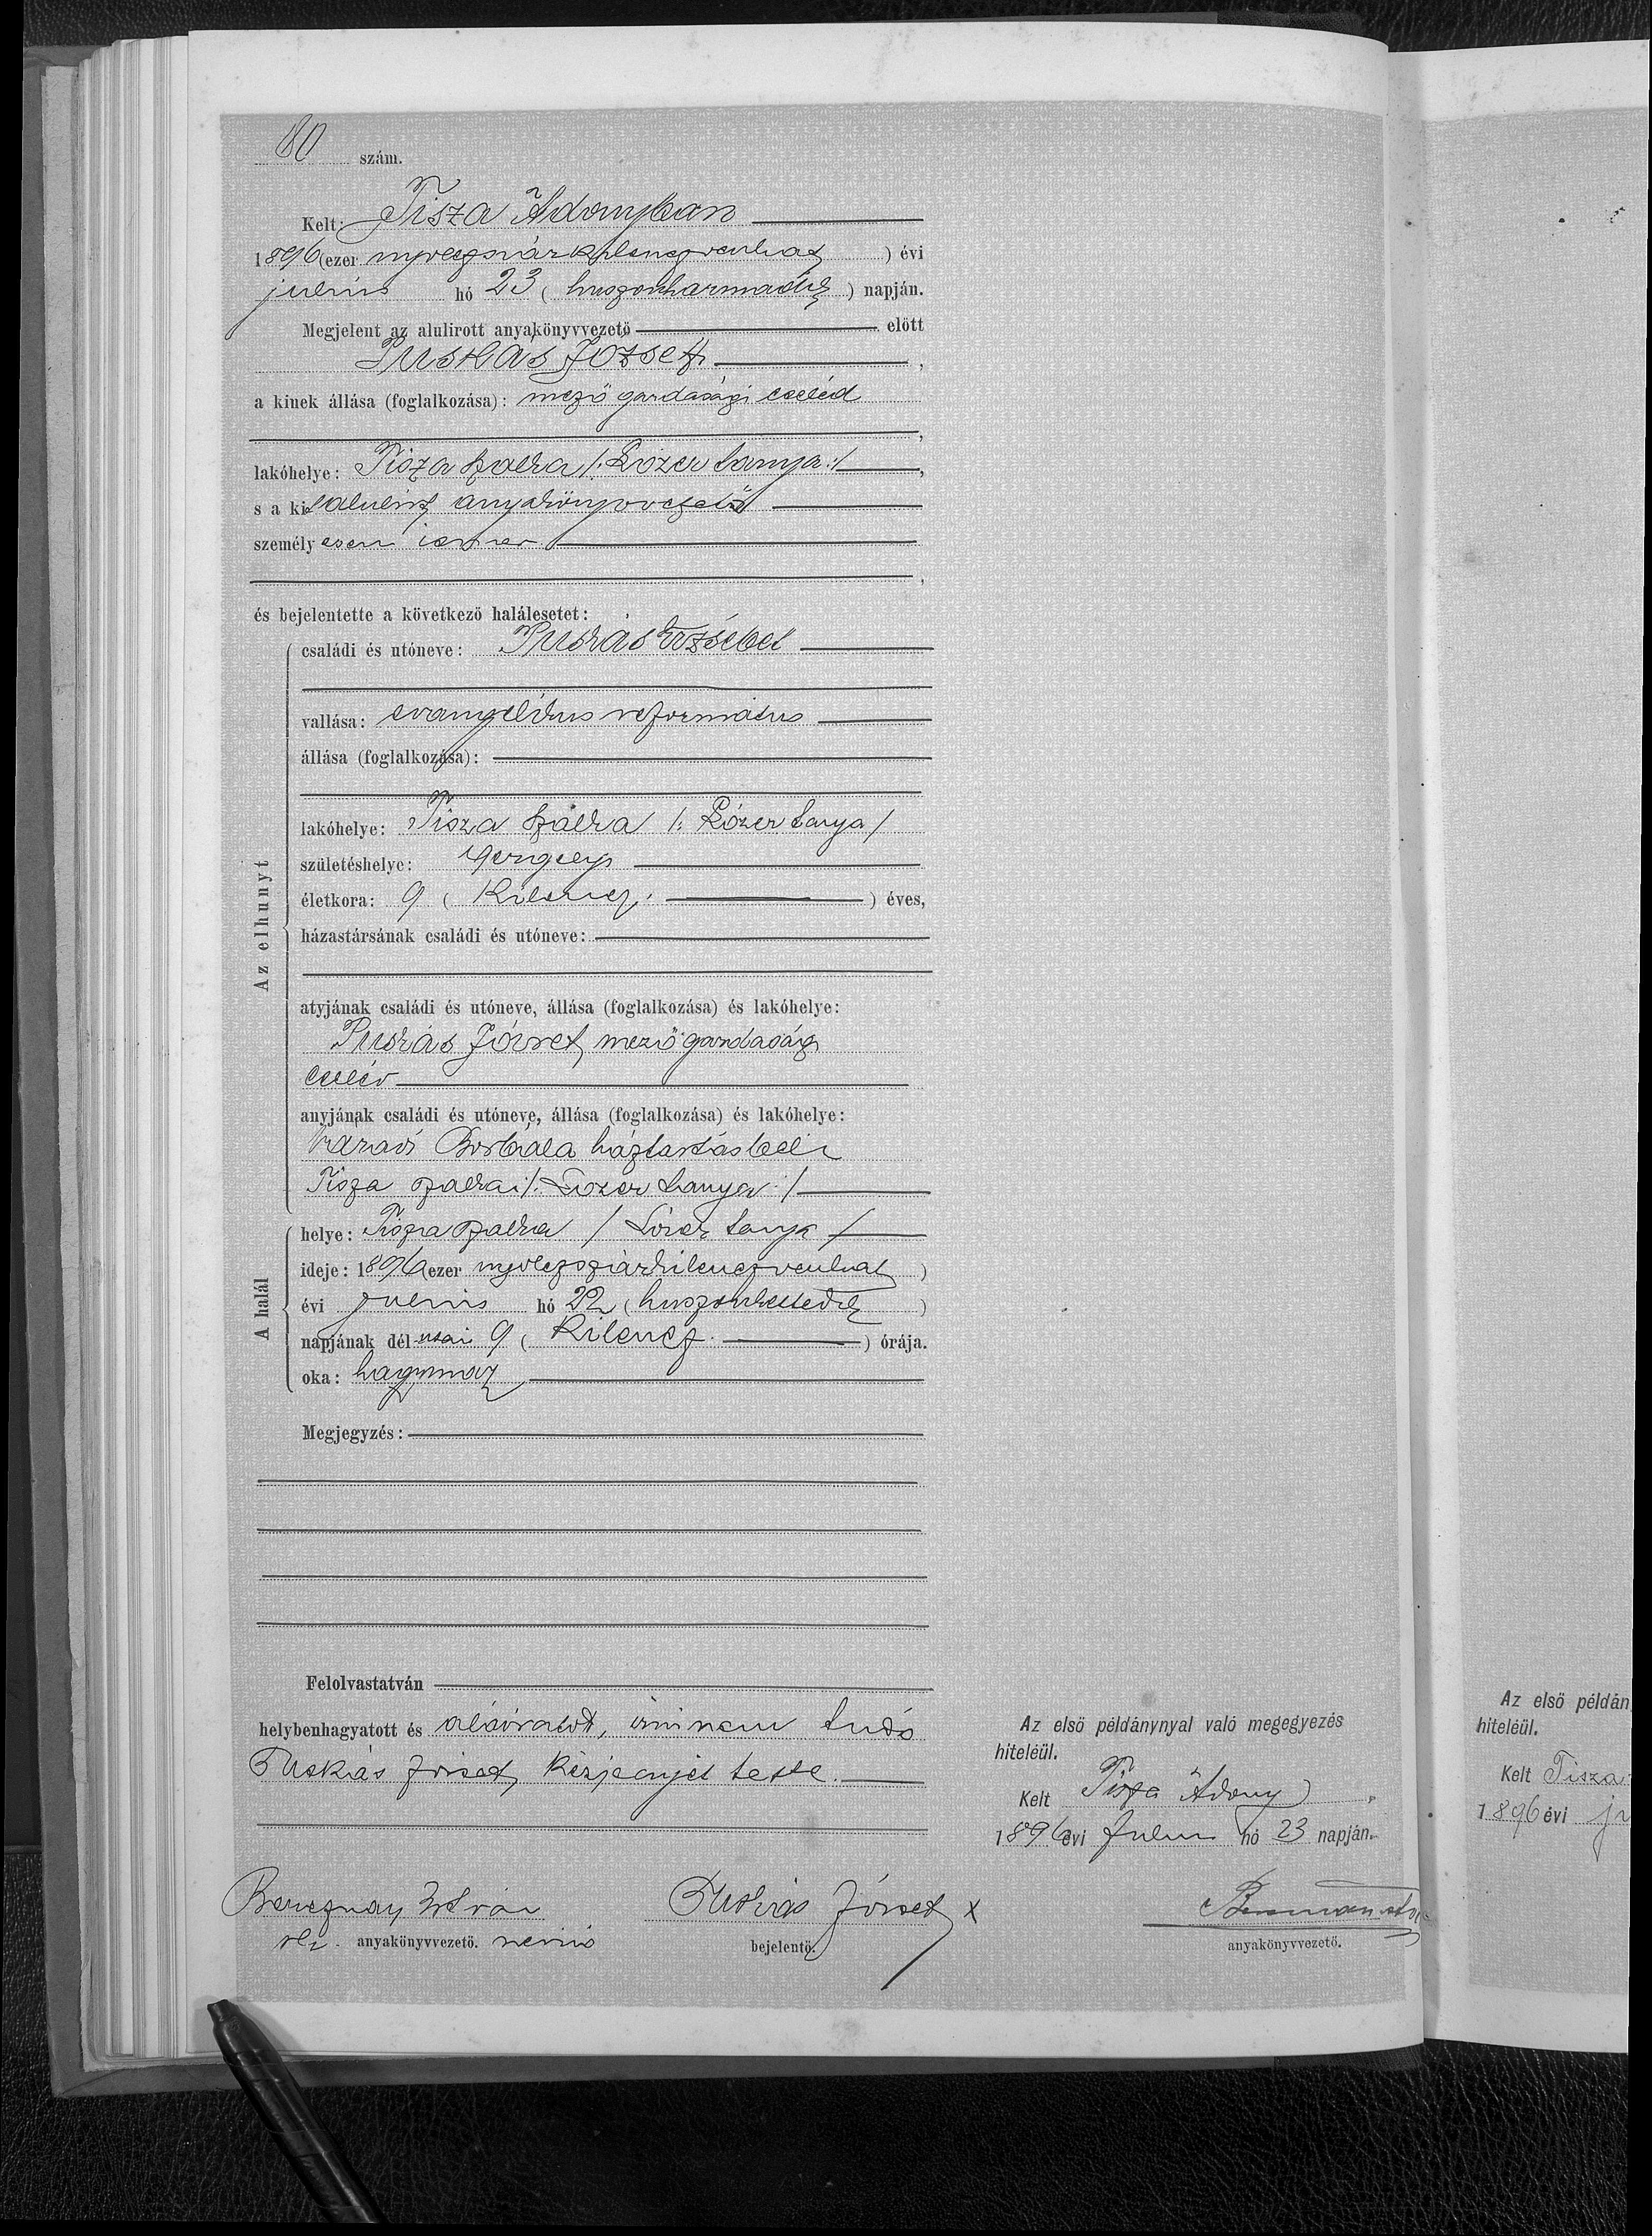 80 szám.
Kelt: Tisza Adonyban
1896 (ezer nyolczszázkilenczvenhat) évi
julius hó 23 (huszonharmadik) napján.
Megjelent az alulirott anyakönyvvezető előtt
Puskás József,
a kinek állása (foglalkozása): mező gazdasági cseléd
,
lakóhelye: Tisza Szalka /: Lózer tanya :/,
s a kit alulirt anyakönyvvezető
személyesen ismer
,
és bejelentette a következő halálesetet:
Az elhunyt
családi és utóneve: Puskás Erzsébet
vallása: evangelikus református
állása (foglalkozása):
lakóhelye: Tisza Szalka /: Lózer tanya /
születéshelye: Gergelyi
életkora: 9 (Kilencz) éves,
házastársának családi és utóneve:
atyjának családi és utóneve, állása (foglalkozása) és lakóhelye:
Puskás József mezőgazdasági
cseléd
anyjának családi és utóneve, állása (foglalkozása) és lakóhelye:
Borbála háztartásbeli
Tisza Szalkai /: Lózer tanya :/
A halál
helye: Tisza Szalka / Lózer tanya /
ideje: 1896 (ezer nyolczszázkilenczvenhat)
évi julius hó 22 (huszonkettedik)
napjának délutáni 9 (Kilencz) órája.
oka: hagymáz
Megjegyzés:
Felolvastatván
helybenhagyatott és aláiratott, irni nem tudó
Puskás József kézjegyét tette.
Bereznay István
anyakönyvvezető.
Puskás József x
bejelentő.
Az első példánynyal való megegyezés
hiteléül.
Kelt Tisza Adony
1896 évi Julius hó 23 napján.
anyakönyvvezető.
Az első példán
hiteléül.
Kelt Tisza
1896 évi ju